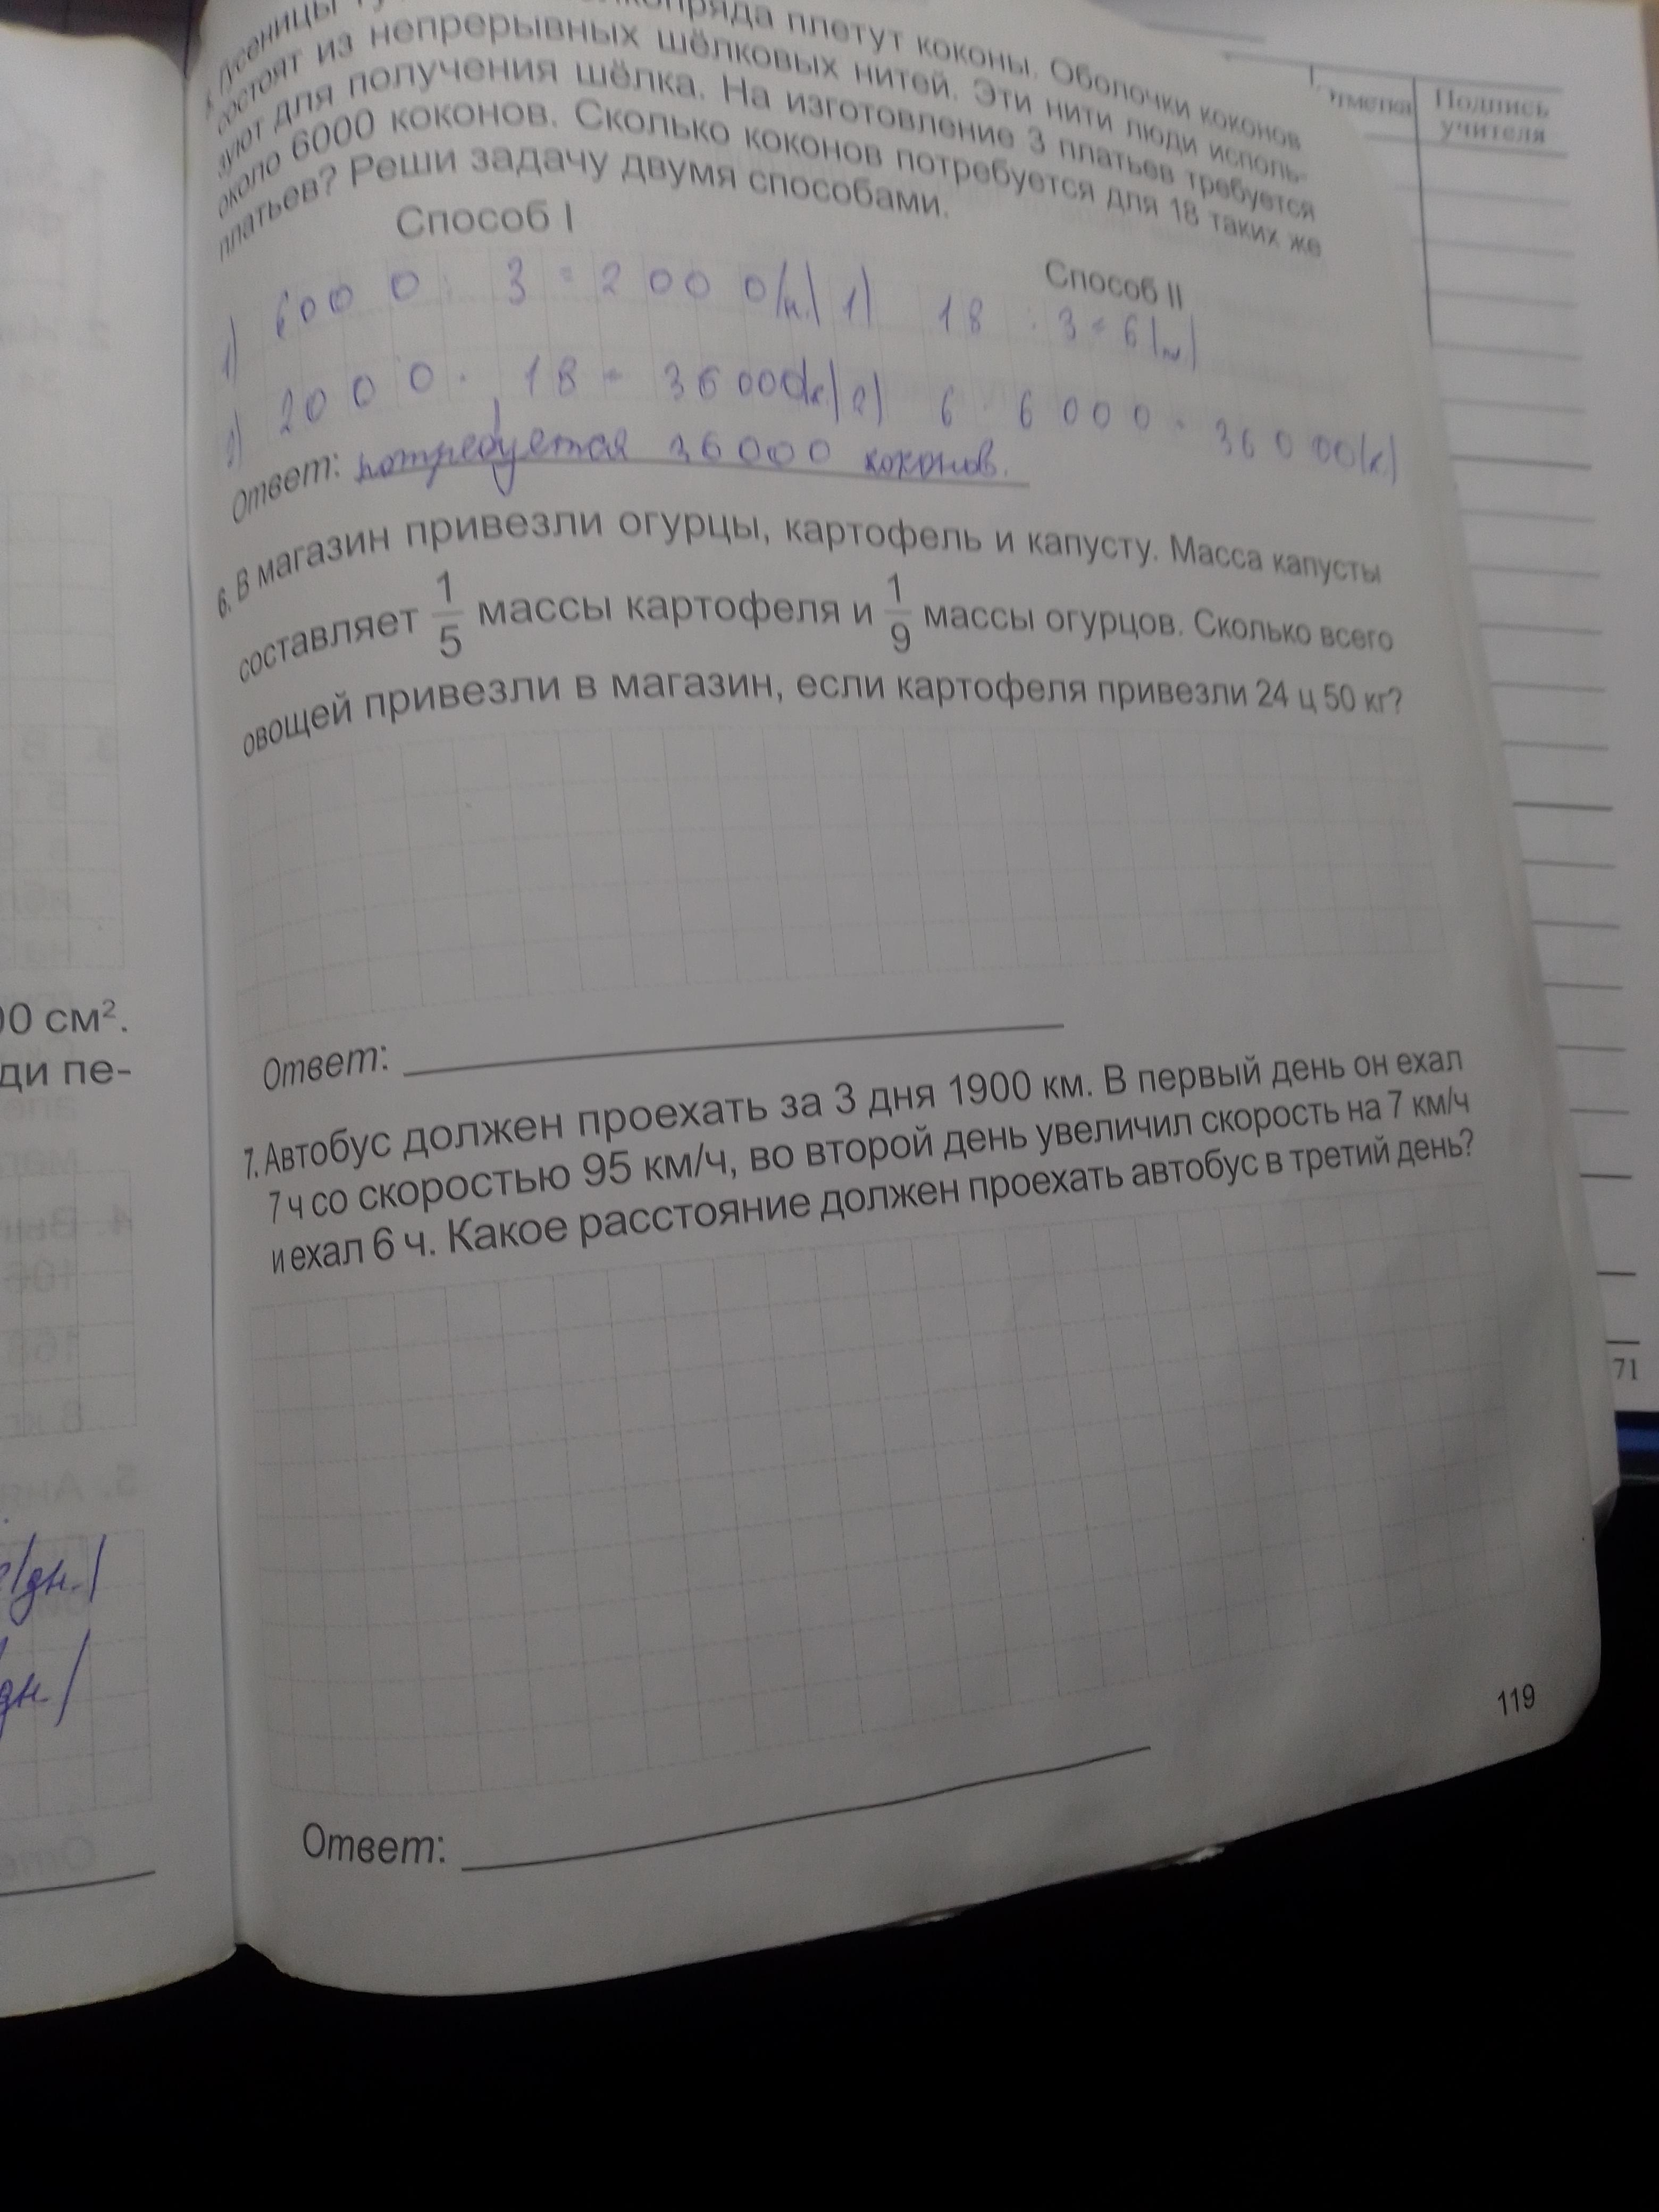 плетут коконы. Оболочки коконов
состоят из непрерывных шёлковых нитей. Эти нити люди исполь-
зуют для получения шёлка. На изготовление 3 платьев требуется
около 6000 коконов. Сколько коконов потребуется для 18 таких же
платьев? Реши задачу двумя способами.
Способ I
Способ II
1) 6000 : 3 = 2000 (к.)
1) 18 : 3 = 6
2) 2000 · 18 = 36000 (к.)
2) 6 · 6000 = 36000 (к.)
Ответ: потребуется 36000 коконов.
6. В магазин привезли огурцы, картофель и капусту. Масса капусты
составляет 1/5 массы картофеля и 1/9 массы огурцов. Сколько всего
овощей привезли в магазин, если картофеля привезли 24 ц 50 кг?
Ответ:
7. Автобус должен проехать за 3 дня 1900 км. В первый день он ехал
7 ч со скоростью 95 км/ч, во второй день увеличил скорость на 7 км/ч
и ехал 6 ч. Какое расстояние должен проехать автобус в третий день?
Ответ:
119
Подпись
учителя
71
см².
ди пе-
(дн.)
дн.)